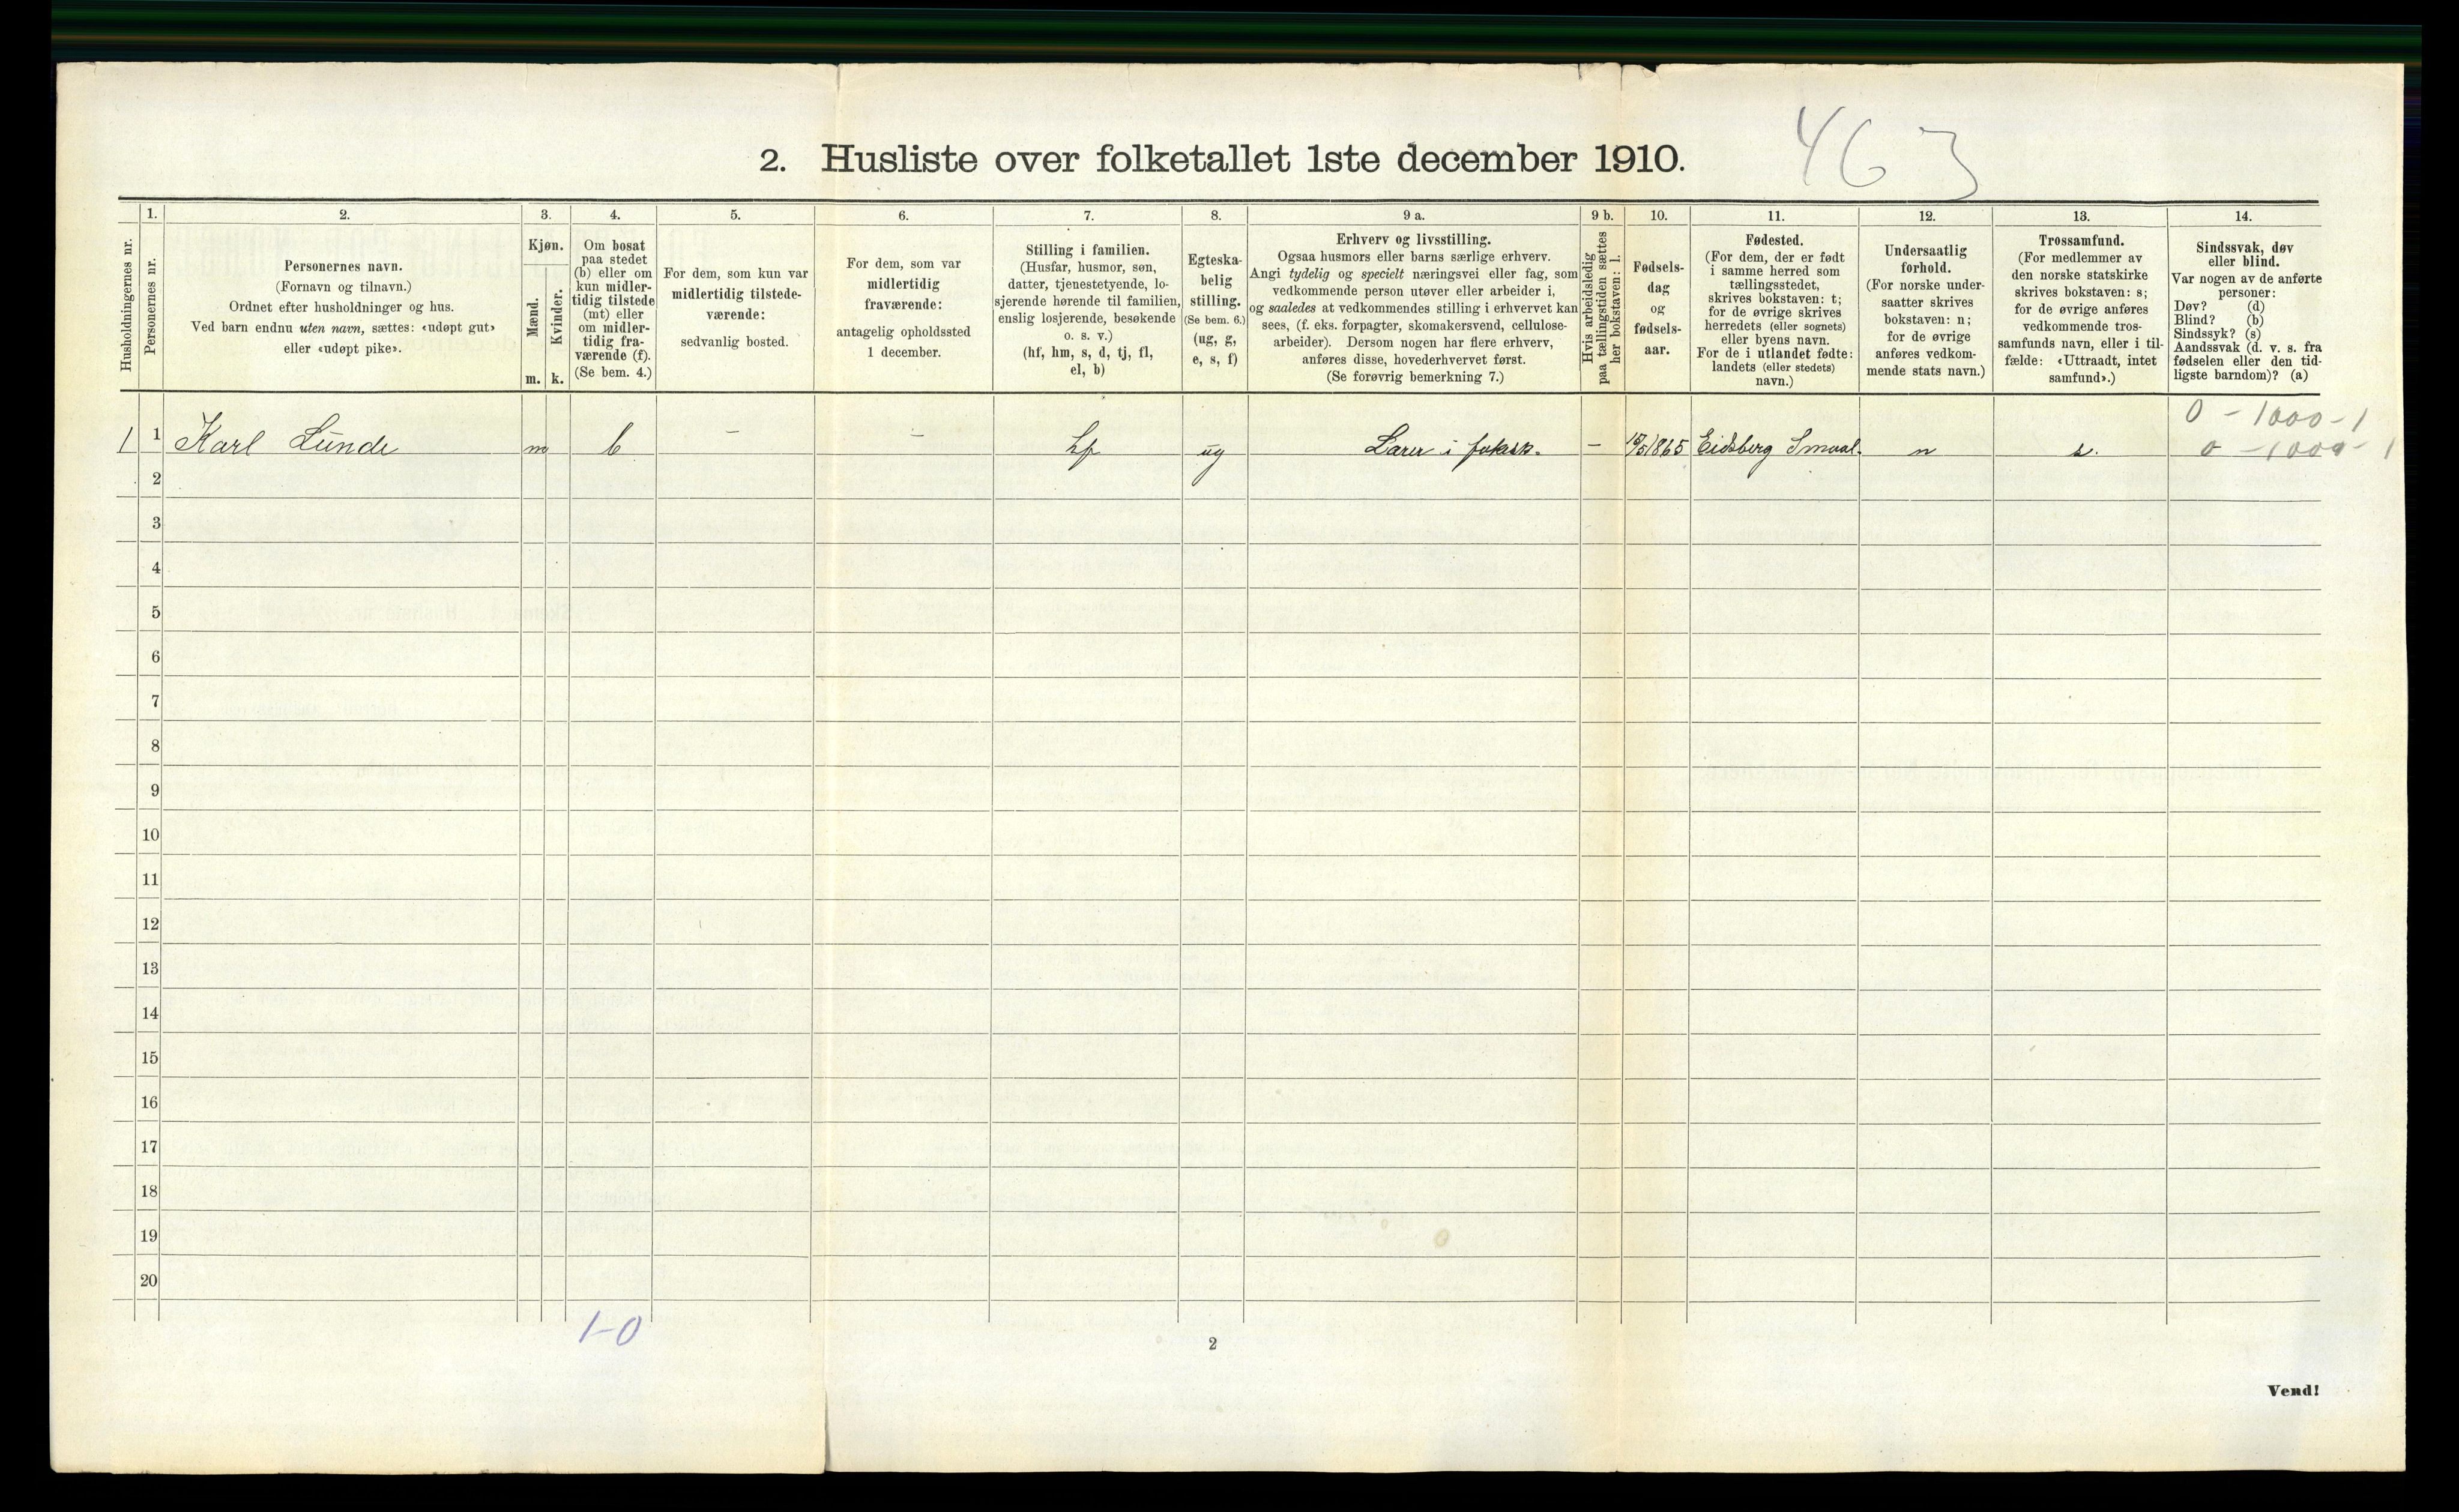 463
2. Husliste over folketallet 1ste december 1910.
Husholdningernes nr.
1.
Personernes nr.
2.
Personernes navn.
(Fornavn og tilnavn.)
Ordnet efter husholdninger og hus.
Ved barn endnu uten navn, sættes: «udøpt gut»
eller «udøpt pike».
3.
Kjøn.
Mænd.
Kvinder.
m. k.
4.
Om bosat
paa stedet
(b) eller om
kun midler-
tidig tilstede
(mt) eller
om midler-
tidig fra-
værende (f).
(Se bem. 4.)
5.
For dem, som kun var
midlertidig tilstede-
værende:
sedvanlig bosted.
6.
For dem, som var
midlertidig
fraværende:
antagelig opholdssted
1 december.
7.
Stilling i familien.
(Husfar, husmor, søn,
datter, tjenestetyende, lo-
sjerende hørende til familien,
enslig losjerende, besøkende
o. s. v.)
(hf, hm, s, d, tj, fl,
el, b)
8.
Egteska-
belig
stilling.
(Se bem. 6.)
(ug, g,
e, s, f)
9 a.
Erhverv og livsstilling.
Ogsaa husmors eller barns særlige erhverv.
Angi tydelig og specielt næringsvei eller fag, som
vedkommende person utøver eller arbeider i,
og saaledes at vedkommendes stilling i erhvervet kan
sees, (f. eks. forpagter, skomakersvend, cellulose-
arbeider). Dersom nogen har flere erhverv,
anføres disse, hovederhvervet først.
(Se forøvrig bemerkning 7.)
9 b.
Hvis arbeidsledig
paa tællingstiden sættes
her bokstaven: l.
10.
Fødsels-
dag
og
fødsels-
aar.
11.
Fødested.
(For dem, der er født
i samme herred som
tællingsstedet,
skrives bokstaven: t;
for de øvrige skrives
herredets (eller sognets)
eller byens navn.
For de i utlandet fødte:
landets (eller stedets)
navn.)
12.
Undersaatlig
forhold.
(For norske under-
saatter skrives
bokstaven: n;
for de øvrige
anføres vedkom-
mende stats navn.)
13.
Trossamfund.
(For medlemmer av
den norske statskirke
skrives bokstaven: s;
for de øvrige anføres
vedkommende tros-
samfunds navn, eller i til-
fælde: «Uttraadt, intet
samfund».)
14.
Sindssvak, døv
eller blind.
Var nogen av de anførte
personer:
Døv? (d)
Blind? (b)
Sindssyk? (s)
Aandssvak (d. v. s. fra
fødselen eller den tid-
ligste barndom)? (a)
0 - 1000 - 1
1 1 Karl Lunde m b - - hf ug Lærer i folkesk. - 1865 Eidsberg Smaal. n s. 0 - 1000 - 1
2
3
4
5
6
7
8
9
10
11
12
13
14
15
16
17
18
19
20
1-0
2
Vend!